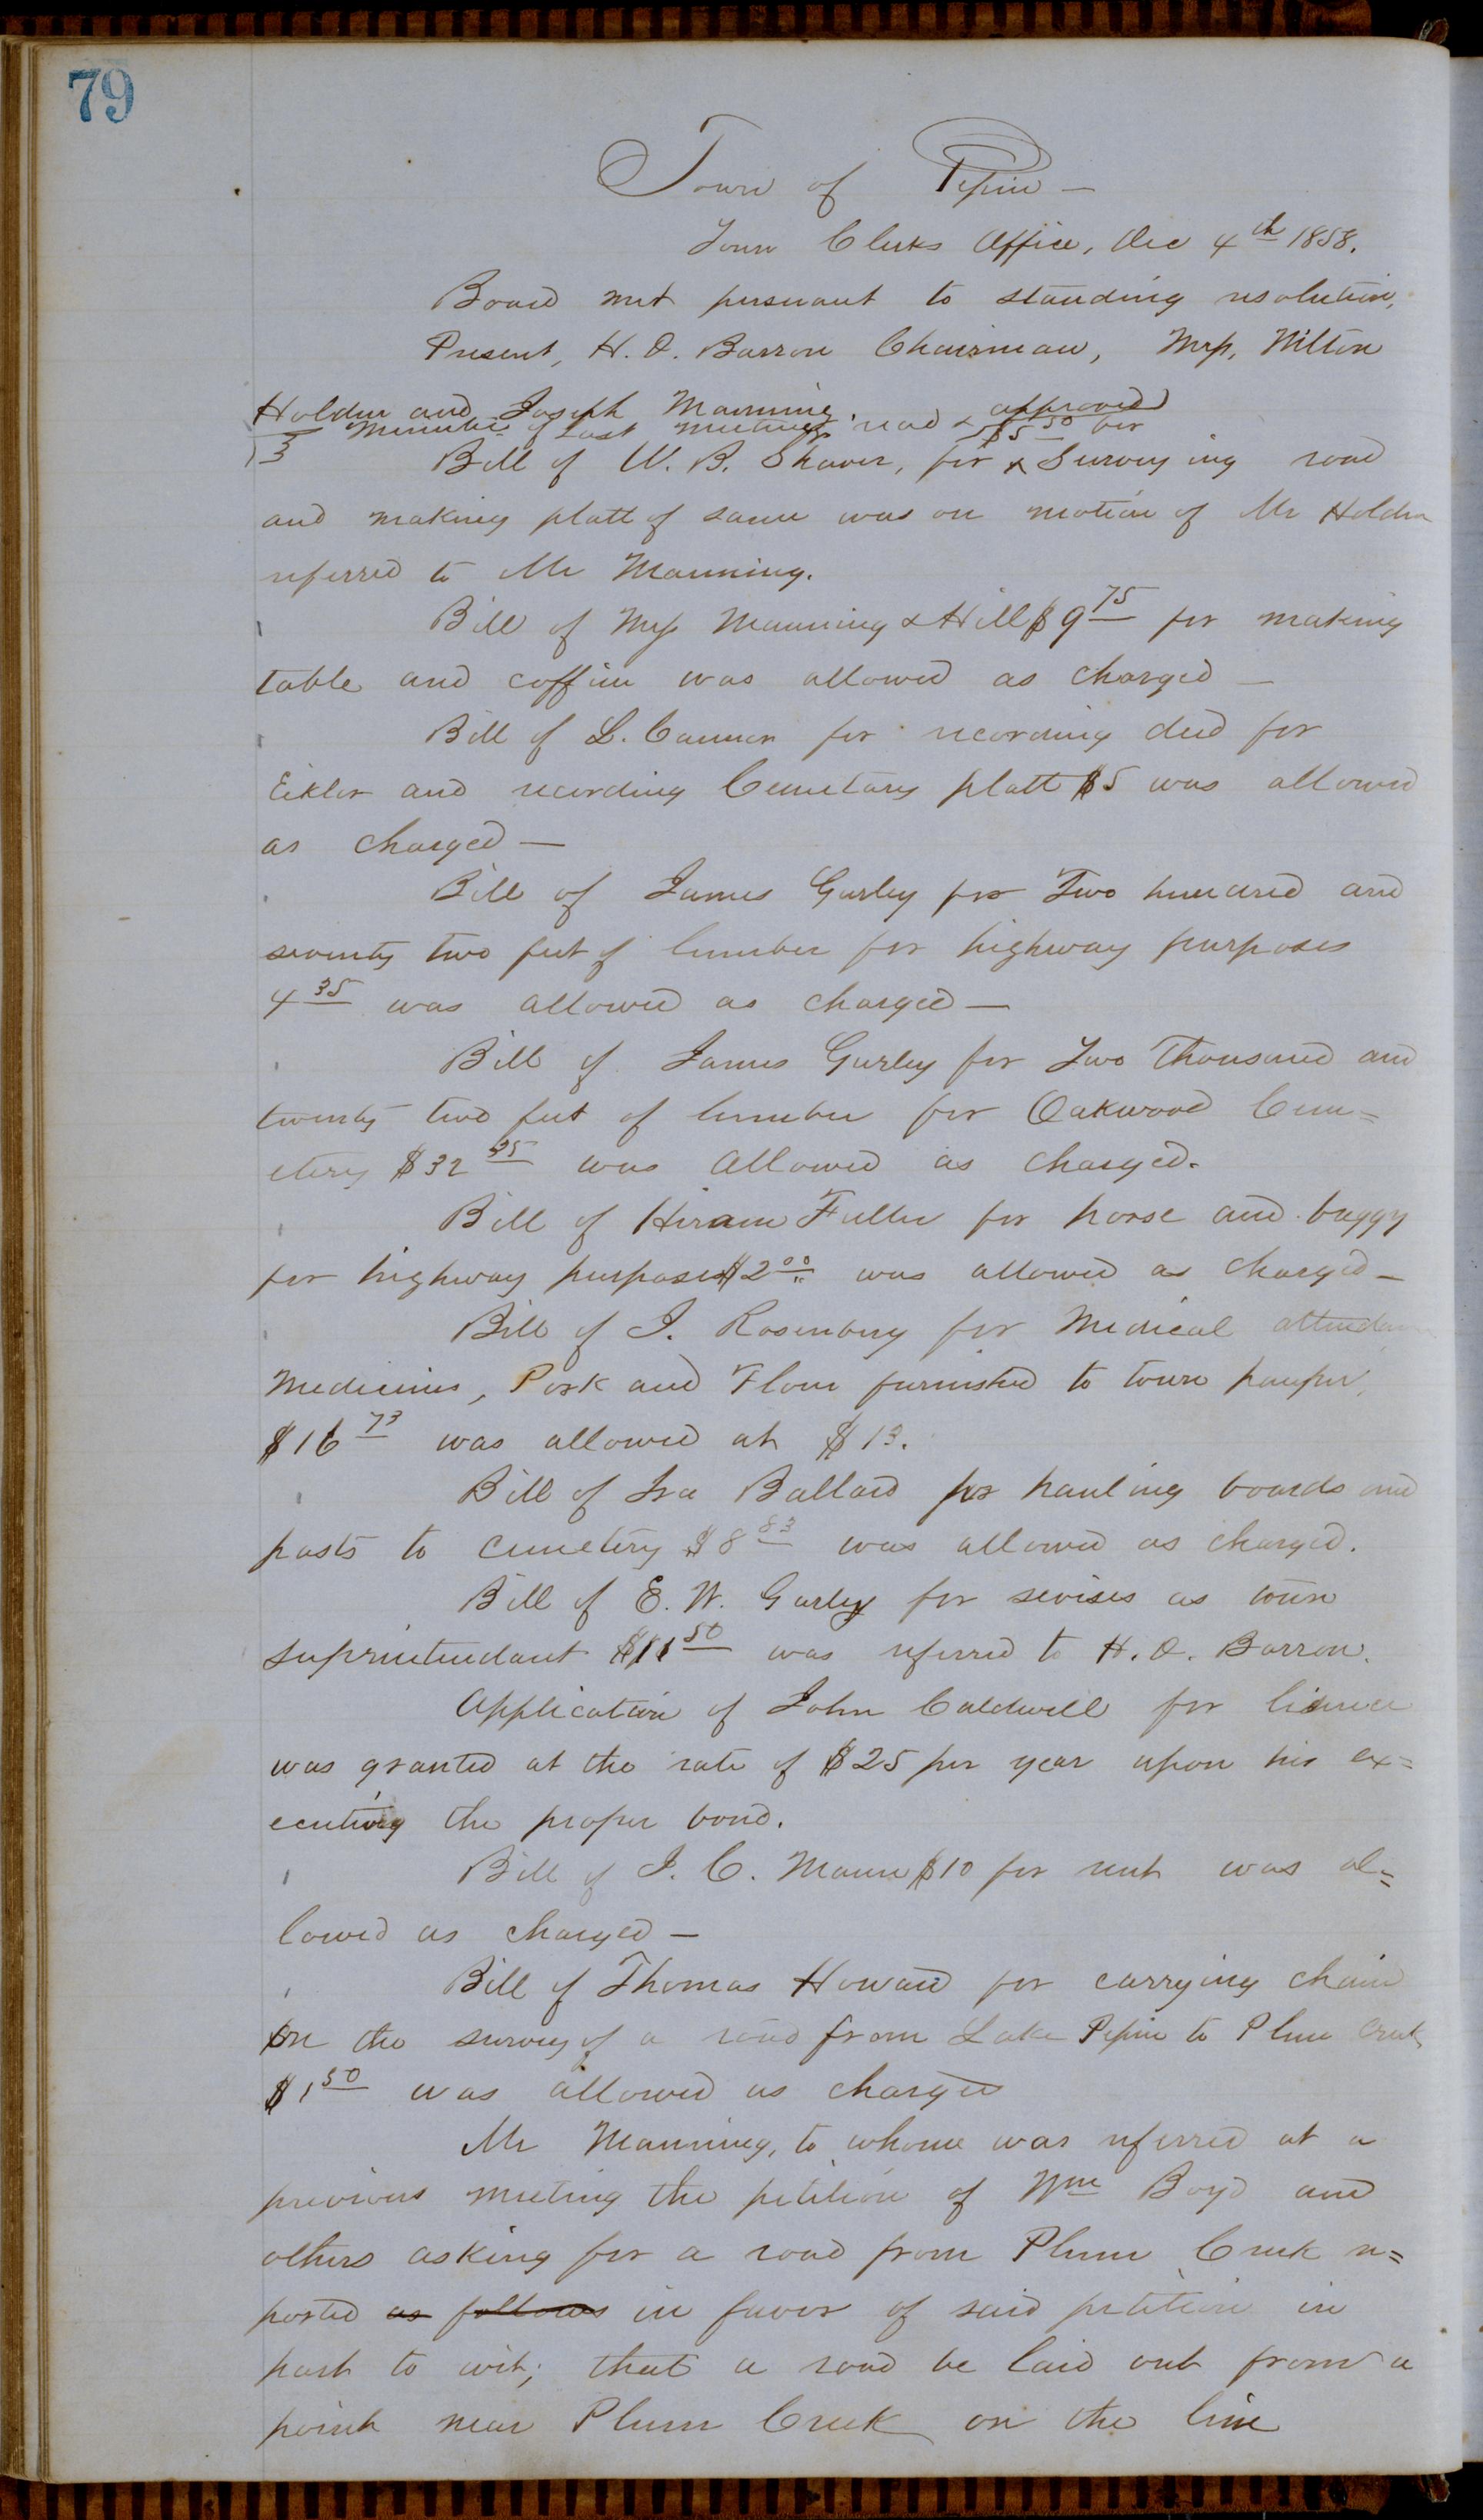 79
Town of Pepin —
Town Clerks Office, Dec 4th 1858.
Board met pursuant to standing resolution,
Present, H. D. Barron Chairman, Mssrs, Milton
Holden and Joseph Manning.
Minutes of Last meeting read & approved
$5 50
Bill of W. B. Shaver, for x Surveying road
and making platt of same was on motion of Mr Holden
referred to Mr Manning.
Bill of Messrs Manning & Hill $9 75 for making
table and coffin was allowed as charged —
Bill of L. Cannon for recording deed for
Eiklor and recording Cemetary platt $5 was allowed
as charged —
Bill of James Gurley for Two hundred and
seventy two feet of lumber for highway purposes
4 35 was allowed as charged —
Bill of James Gurley for Two Thousand and
twenty two feet of lumber for Oakwood Cem=
etery $32 35 was allowed as charged.
Bill of Hiram Fuller for horse and buggy
for highway purposes $2 00 was allowed as charged —
Bill of J. Rosenbury for Medical
Medicines, Pork and Flour furnished to town pauper,
$16 73 was allowed at $13.
Bill of Ira Ballard for hauling boards and
posts to cemetery $8 83 was allowed as charged.
Bill of E. W. Gurley for sevises as town
suprintendant $11 50 was referred to H. D. Barron.
Application of John Caldwell for lisence
was granted at the rate of $25 per year upon his ex=
ecuting the proper bond.
Bill of J. C. Mann $10 for rent was al=
lowed as charged —
Bill of Thomas Howard for carrying chain
on the survey of a road from Lake Pepin to Plum Creek
$1 50 was allowed as charged
Mr Manning, to whome was referred at a
previous meeting the petition of Wm Boyd and
others asking for a road from Plum Creek re=
ported as follows in favor of said petition in
part to wit; that a road be laid out from a
point near Plum Creek on the line